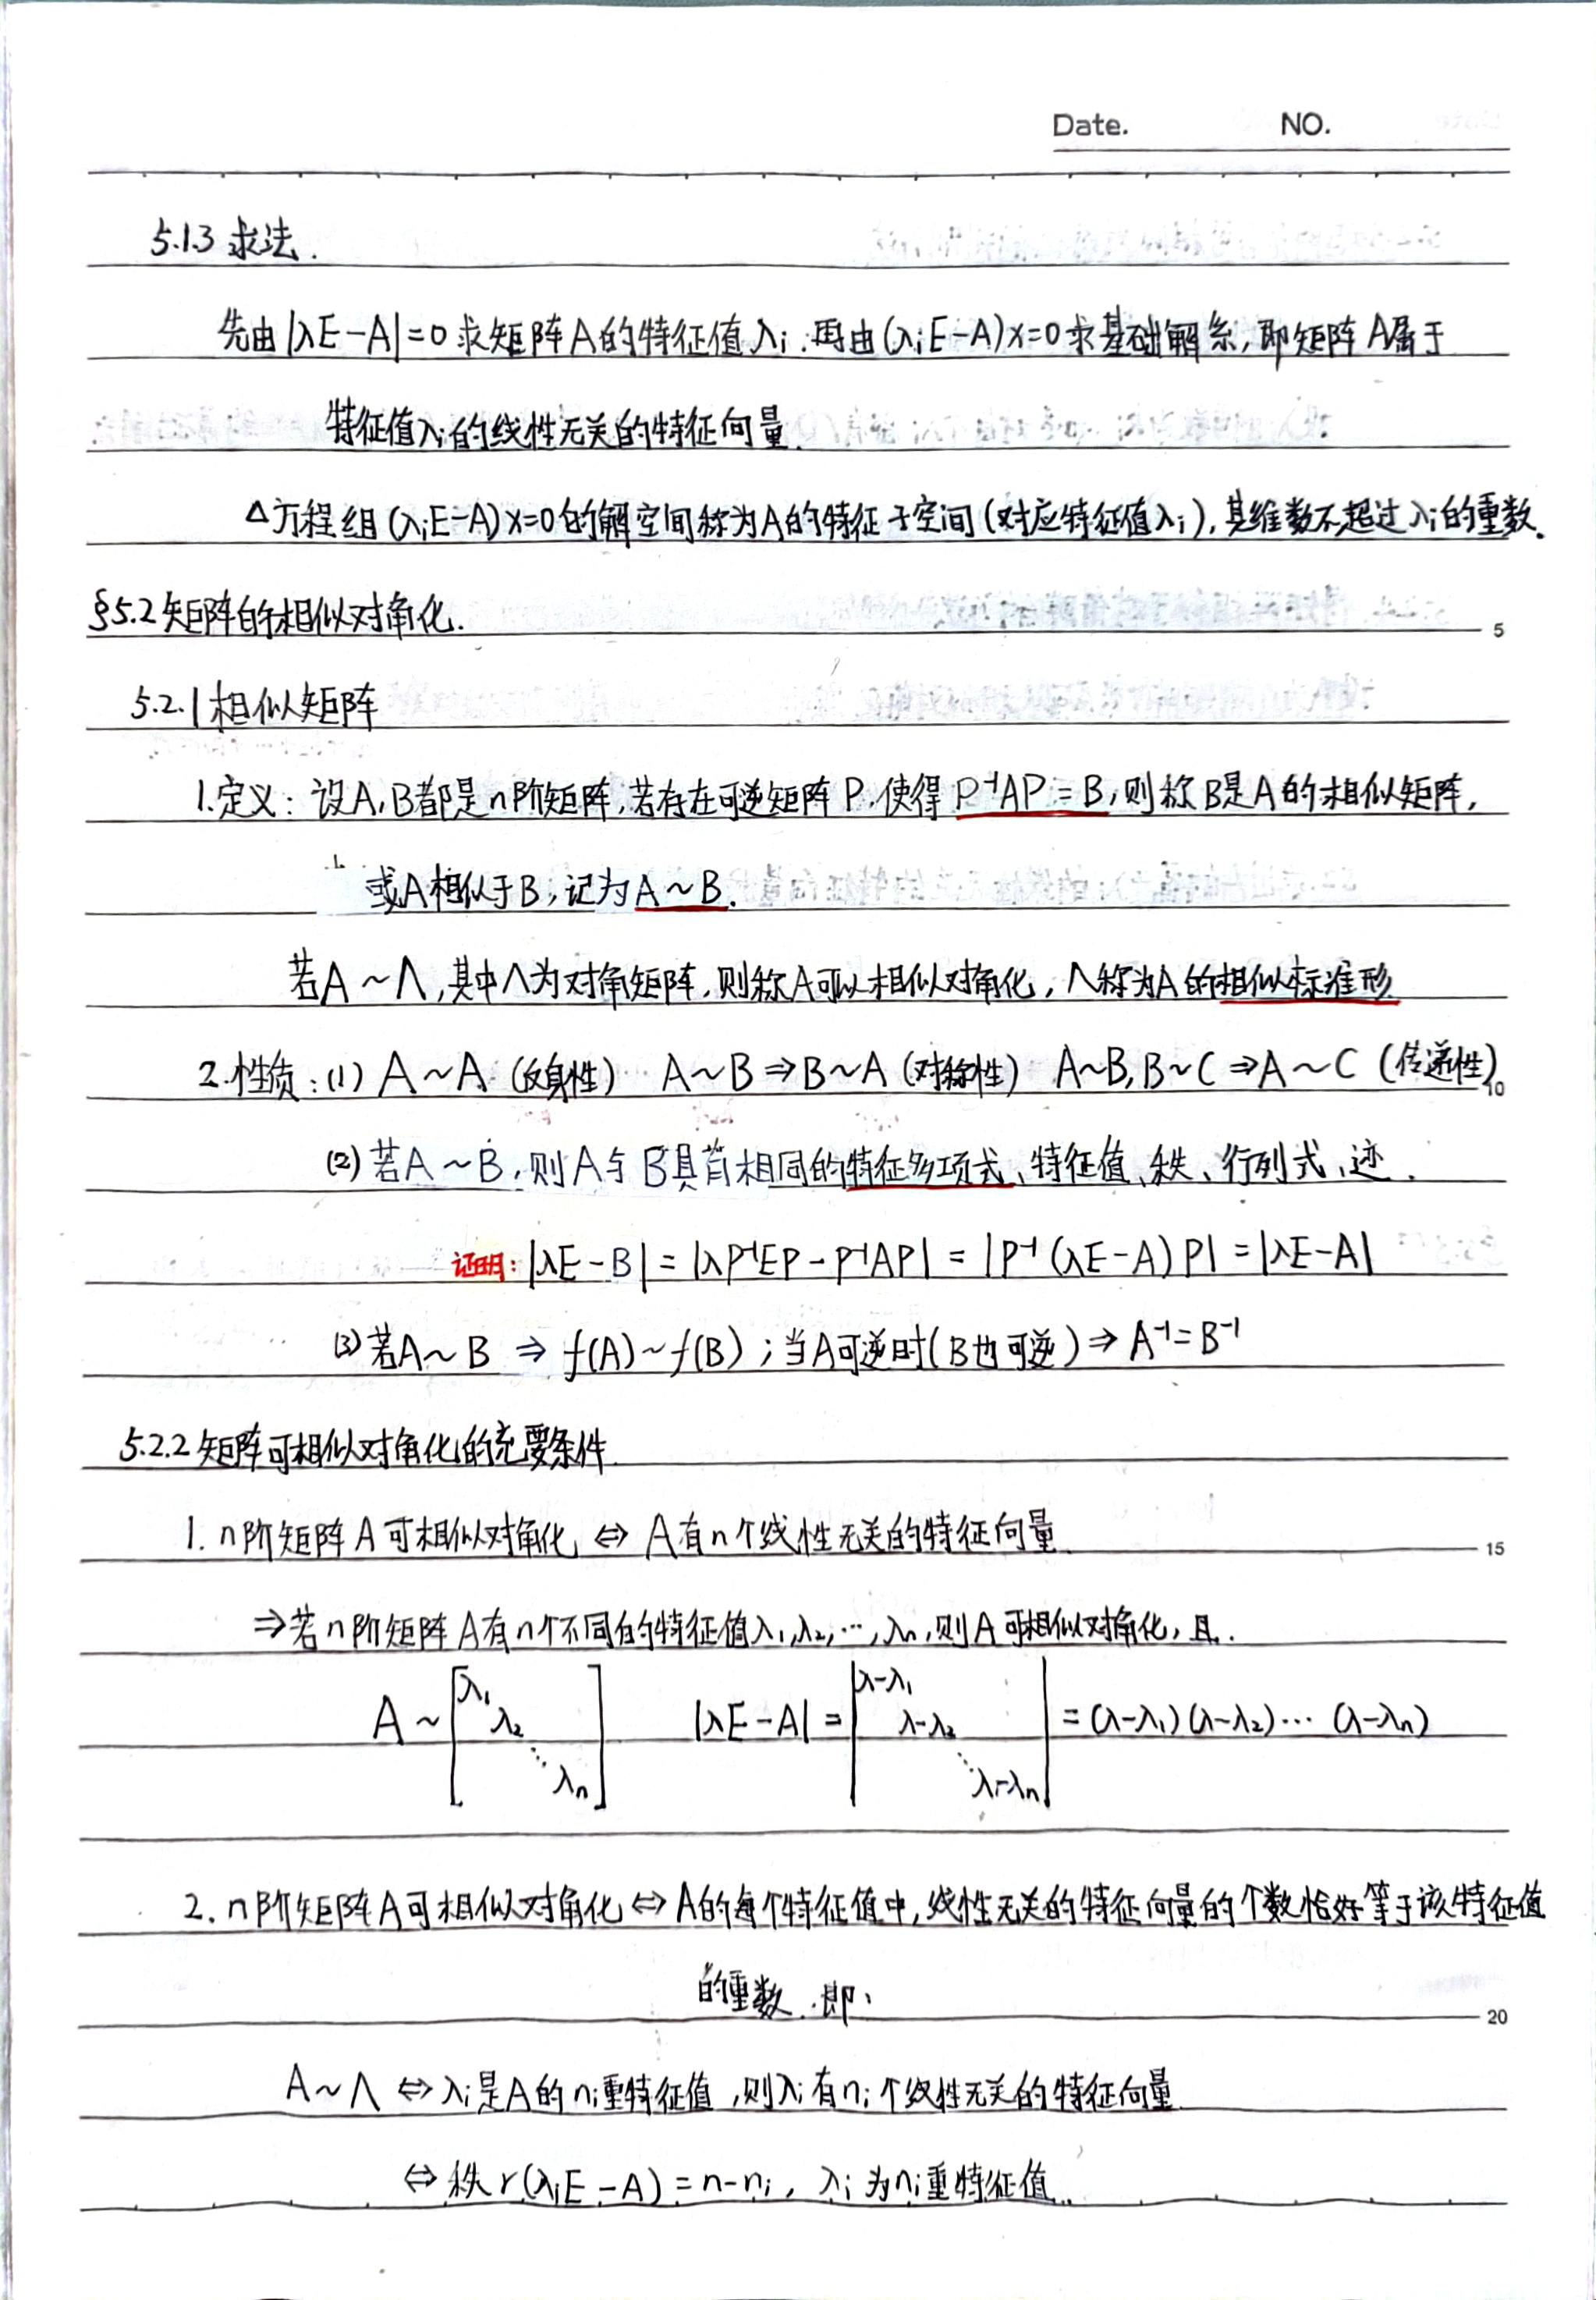 Date. NO.
5.1.3 求法.
先由|λE-A|=0求矩阵A的特征值λi.再由(λiE-A)x=0求基础解系,即矩阵A属于
特征值λi的线性无关的特征向量.
△方程组(λiE-A)x=0的解空间称为A的特征子空间(对应特征值λi),其维数不超过λi的重数.
§5.2矩阵的相似对角化.
5
5.2.1相似矩阵
1.定义: 设A,B都是n阶矩阵,若存在可逆矩阵P.使得P⁻¹AP=B,则称B是A的相似矩阵,
或A相似于B,记为A~B.
若A~Λ,其中Λ为对角矩阵,则称A可以相似对角化,Λ称为A的相似标准形
2.性质:(1) A~A (反身性) A~B⇒B~A (对称性) A~B,B~C⇒A~C (传递性)
10
(2)若A~B,则A与B具有相同的特征多项式、特征值、秩、行列式、迹.
证明: |λE-B|=|λP⁻¹EP-P⁻¹AP|=|P⁻¹(λE-A)P|=|λE-A|
(3)若A~B ⇒ f(A)~f(B);当A可逆时(B也可逆)⇒A⁻¹=B⁻¹
5.2.2矩阵可相似对角化的充要条件.
1. n阶矩阵A可相似对角化 ⇔ A有n个线性无关的特征向量.
15
⇒若n阶矩阵A有n个不同的特征值λ₁,λ₂,…,λn,则A可相似对角化,且.
A~[λ₁ λ₂ ⋱ λn] |λE-A|=|λ-λ₁ λ-λ₂ ⋱ λ-λn|=(λ-λ₁)(λ-λ₂)…(λ-λn)
2. n阶矩阵A可相似对角化⇔A的每个特征值中,线性无关的特征向量的个数恰好等于该特征值
的重数.即:
20
A~Λ ⇔ λi是A的ni重特征值,则λi有ni个线性无关的特征向量.
⇔ 秩r(λiE-A)=n-ni, λi为ni重特征值.